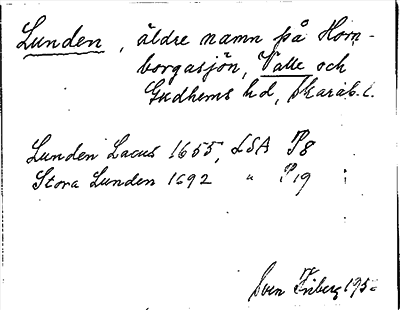 Lunden, äldre namn på Horn-
borgasjön, Valle och
Gudhems hd, Skarab. l.
Lunden Lacus 1655, LSA P8
Stora Lunden 1692 " P19
Sven Friberg 195